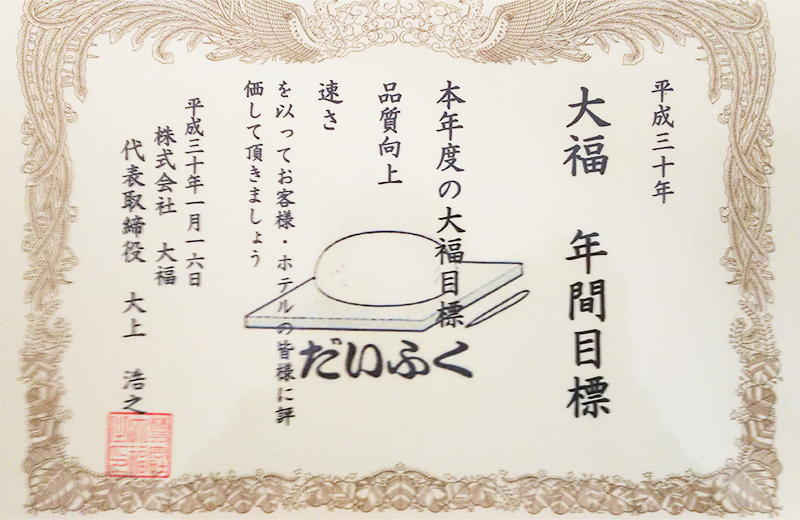 平成三十年
大福　年間目標
本年度の大福目標
品質向上
速さ
を以ってお客様・ホテルの皆様に評
価して頂きましょう
平成三十年一月一六日
株式会社　大福
代表取締役　大上　浩之
だいふく